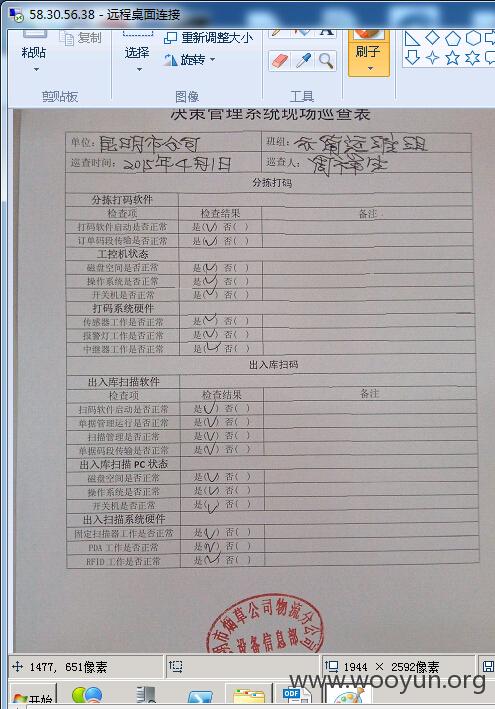 58.30.56.38 - 远程桌面连接
粘贴 复制 选择 重新调整大小 旋转 刷子
剪贴板 图像 工具
决策管理系统现场巡查表
单位: 昆明市公司 班组:
巡查时间: 2015年4月1日 巡查人:
分拣打码
分拣打码软件
检查项 检查结果 备注
打码软件启动是否正常 是(✓) 否( )
订单码段传输是否正常 是(✓) 否( )
工控机状态
磁盘空间是否正常 是(✓) 否( )
操作系统是否正常 是(✓) 否( )
开关机是否正常 是(✓) 否( )
打码系统硬件
传感器工作是否正常 是(✓) 否( )
报警灯工作是否正常 是(✓) 否( )
中继器工作是否正常 是(✓) 否( )
出入库扫码
出入库扫描软件
检查项 检查结果 备注
扫码软件启动是否正常 是(✓) 否( )
单据管理运行是否正常 是(✓) 否( )
扫描管理是否正常 是(✓) 否( )
单据码段传输是否正常 是(✓) 否( )
出入库扫描PC状态
磁盘空间是否正常 是(✓) 否( )
操作系统是否正常 是(✓) 否( )
开关机是否正常 是(✓) 否( )
出入扫描系统硬件
固定扫描器工作是否正常 是(✓) 否( )
PDA工作是否正常 是(✓) 否( )
RFID工作是否正常 是(✓) 否( )
明市烟草公司物流分公司
设备信息部
1477, 651像素 1944 × 2592像素
开始 ODF
www.wooyun.org